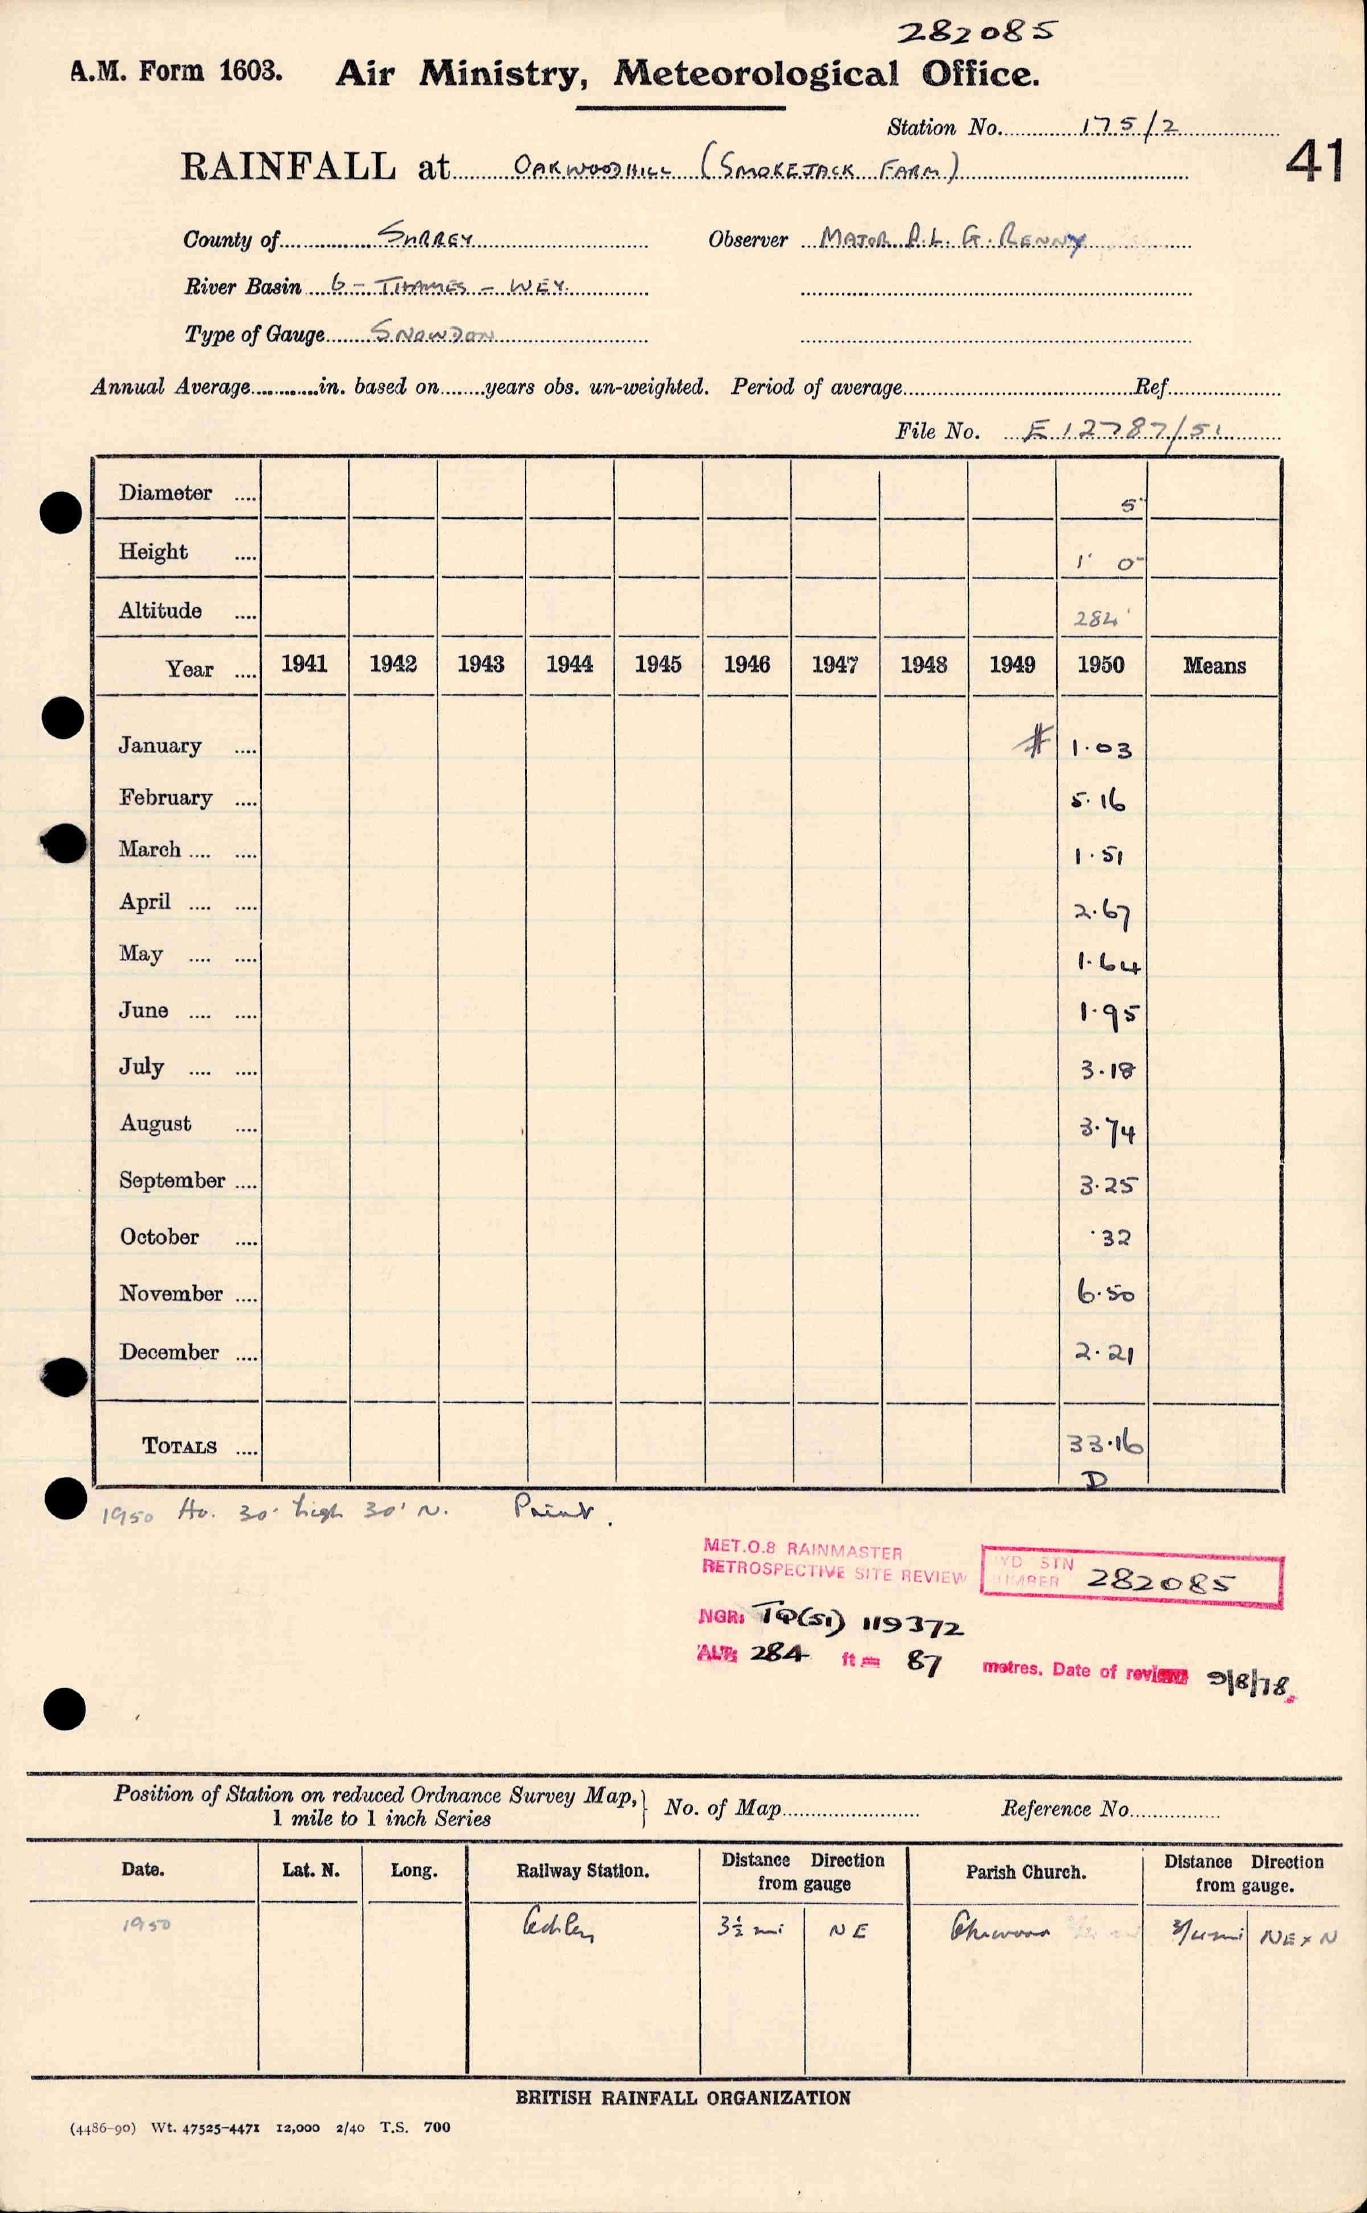 282085
A.M. Form 1603. Air Ministry, Meteorological Office.
Station No. 175/2
RAINFALL at OAKWOODHILL (SMOKEJACK FARM) 41
County of SURREY Observer MAJOR P.L.G. RENNY
River Basin 6 - THAMES - WEY.
Type of Gauge SNOWDON
Annual Average............in. based on........years obs. un-weighted. Period of average............Ref............
File No. E 12787/51
Diameter .... 5"
Height .... 1' 0"
Altitude .... 284'
Year .... 1941 1942 1943 1944 1945 1946 1947 1948 1949 1950 Means
January .... # 1.03
February .... 5.16
March .... .... 1.51
April .... .... 2.67
May .... .... 1.64
June .... .... 1.95
July .... .... 3.18
August .... 3.74
September .... 3.25
October .... .32
November .... 6.50
December .... 2.21
TOTALS .... 33.16
D
1950 Ho. 30' high 30' N. Print.
MET.O.8 RAINMASTER
RETROSPECTIVE SITE REVIEW
YD STN
UMBER 282085
NGR: TQ(51) 119372
ALT: 284 ft = 87 metres. Date of review 9/8/78.
Position of Station on reduced Ordnance Survey Map, 1 mile to 1 inch Series } No. of Map............ Reference No............
Date. Lat. N. Long. Railway Station. Distance from gauge Direction Parish Church. Distance from gauge. Direction
1950 Ockley 3½ mi NE 3/4 mi NE x N
BRITISH RAINFALL ORGANIZATION
(4486-90) Wt. 47525-4471 12,000 2/40 T.S. 700